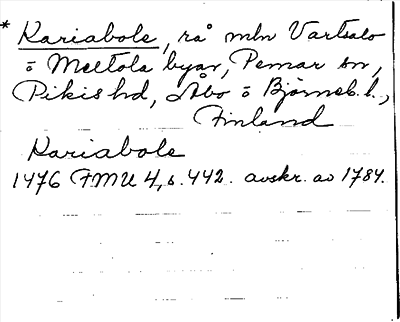 * Kariabole, rå mln Vartsalo
o Meltola byar, Pemar sn,
Pikis hd, Åbo o Björneb. l.,
Finland
Kariabole
1476 FMU 4, s. 442. avskr. av 1784.